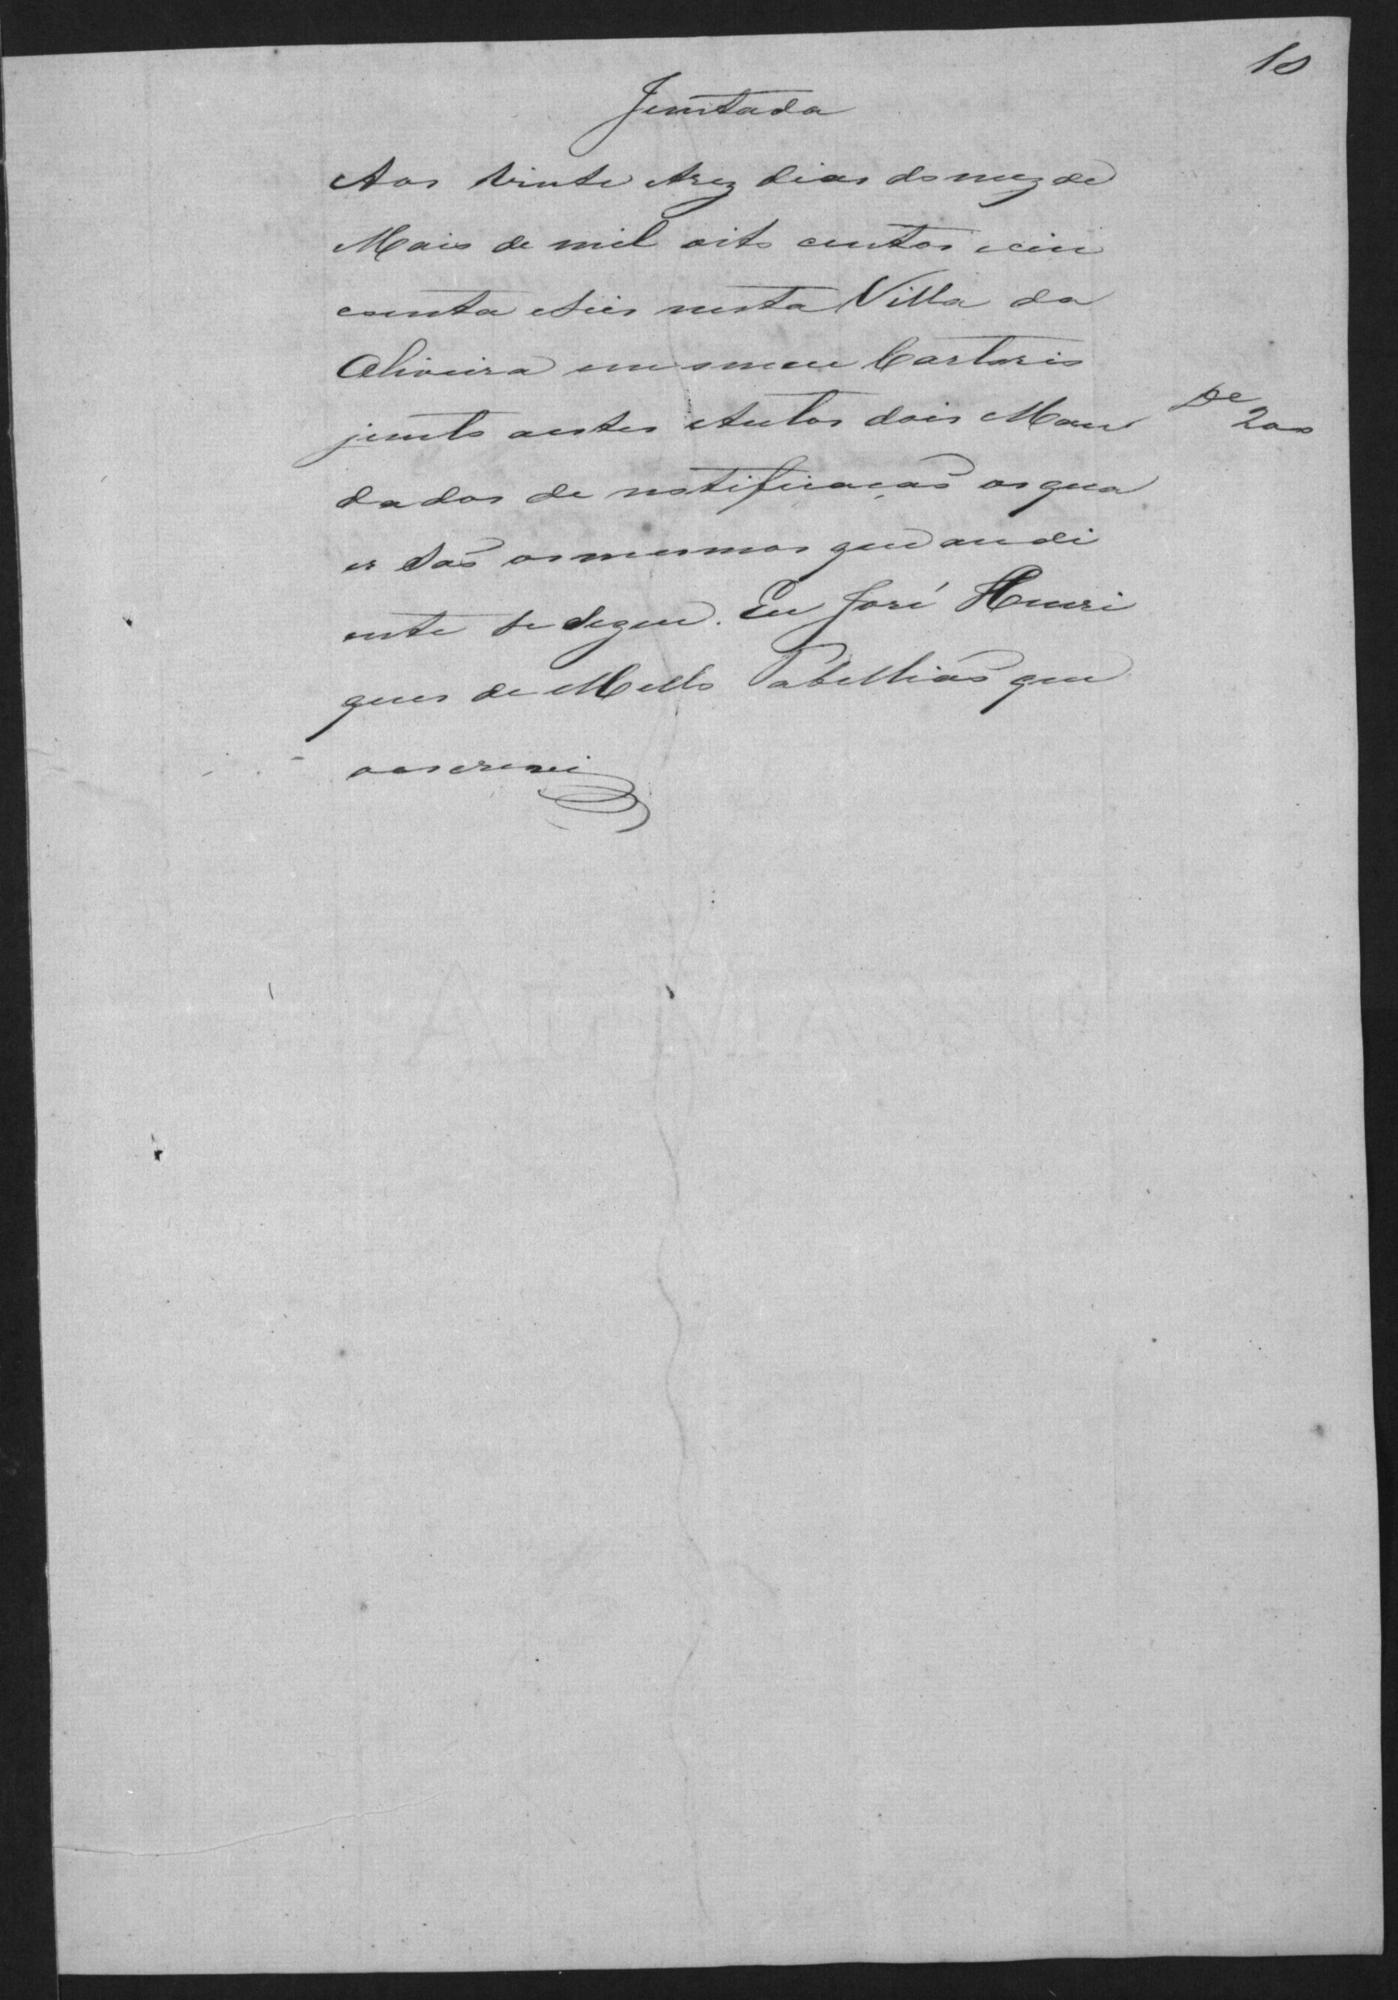 10
Juntada
Aos vinte etrez dias do mez de
Maio de mil oito centos ecin
coenta eseis nesta Villa da
Oliveira em omeu Cartorio
junto aestes Autos dois Man
200
dados de notificação osqua
es são osmesmos que audi
ente se segue. Eu José Henri
ques de Mello Tabellião que
oescrevi